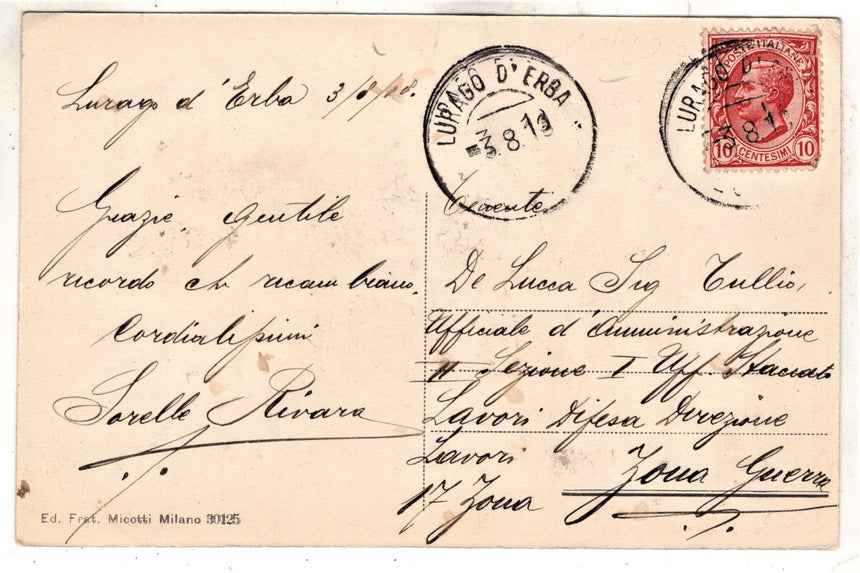 Lurago d'Erba 3/8/18.
Grazie, gentile
ricordo che ricambiamo.
Cordialissimi
Sorelle Rivara
Ed. Frat. Micotti Milano 30125
LURAGO D'ERBA
3.8.18
POSTE ITALIANE
10 CENTESIMI 10
LURAGO D'ERBA
3.8.18
Tenente
De Lucca Sig Tullio,
Ufficiale d'Amministrazione
II Sezione I Uff. Staccato
Lavori Difesa Direzione
Lavori Zona Guerra
17 Zona